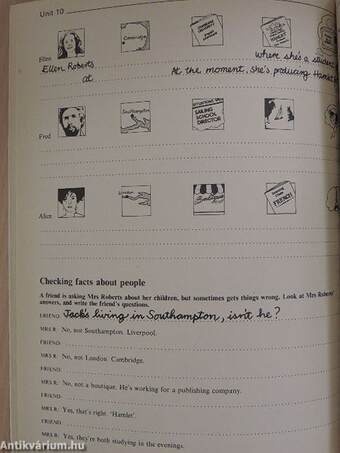 Unit 10
Ellen
Cambridge
where she's a student
Ellen Roberts
at
At the moment, she's producing Hamlet
Fred
Southampton
SAILING
SCHOOL
DIRECTOR
Alice
London
Boutique
FRENCH
Checking facts about people
A friend is asking Mrs Roberts about her children, but sometimes gets things wrong. Look at Mrs Roberts'
answers, and write the friend's questions.
FRIEND: Jack's living in Southampton, isn't he?
MRS R: No, not Southampton. Liverpool.
FRIEND:
MRS R: No, not London. Cambridge.
FRIEND:
MRS R: No, not a boutique. He's working for a publishing company.
FRIEND:
MRS R: Yes, that's right. 'Hamlet'.
FRIEND:
MRS R: Yes, they're both studying in the evenings.
Antikvárium.hu